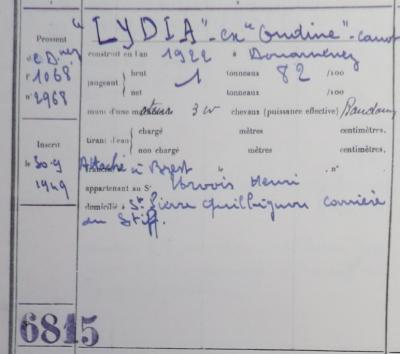 "LYDIA" - ex "Ondine" - canot
Prossent
construit en l'an 1922 à Douarnenez
e Dnez
f° 1068
n° 2968
jaugeant
brut 1 tonneaux 82 /100
net tonneaux /100
muni d'une moteur 3 cv chevaux (puissance effective) Baudouin
tirant d'eau
chargé mètres centimètres.
non chargé mètres centimètres.
Inscrit
le 30-9
1949
Attaché à Brest n°
appartenant au Sr Henri
domicilié à St Pierre Quilbignon carrière
du Stiff.
6815